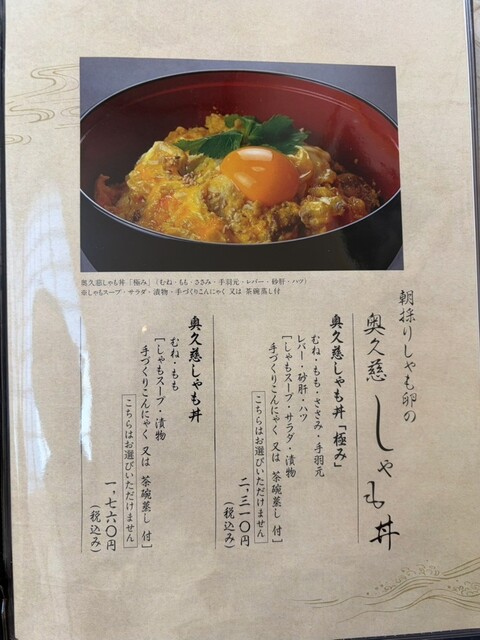 奥久慈しゃも丼「極み」(むね・もも・ささみ・手羽元・レバー・砂肝・ハツ)
※しゃもスープ・サラダ・漬物・手づくりこんにゃく 又は 茶碗蒸し付
朝採りしゃも卵の
奥久慈しゃも丼
奥久慈しゃも丼「極み」
むね・もも・ささみ・手羽元
レバー・砂肝・ハツ
[しゃもスープ・サラダ・漬物
手づくりこんにゃく 又は 茶碗蒸し 付]
こちらはお選びいただけません
二,三一〇円
(税込み)
奥久慈しゃも丼
むね・もも
[しゃもスープ・漬物
手づくりこんにゃく 又は 茶碗蒸し 付]
こちらはお選びいただけません
一,七六〇円
(税込み)